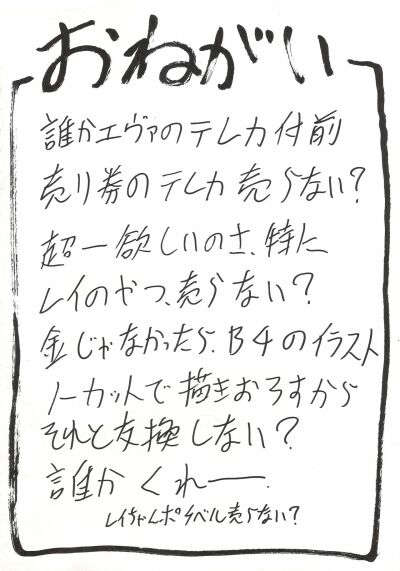 おねがい
誰かエヴァのテレカ付前
売り券のテレカ売らない?
超一欲しいのさ、特に
レイのやつ、売らない?
金じゃなかったら、B4のイラスト
ノーカットで描きおろすから
それと交換しない?
誰かくれー。
レイちゃんポケベル売らない?